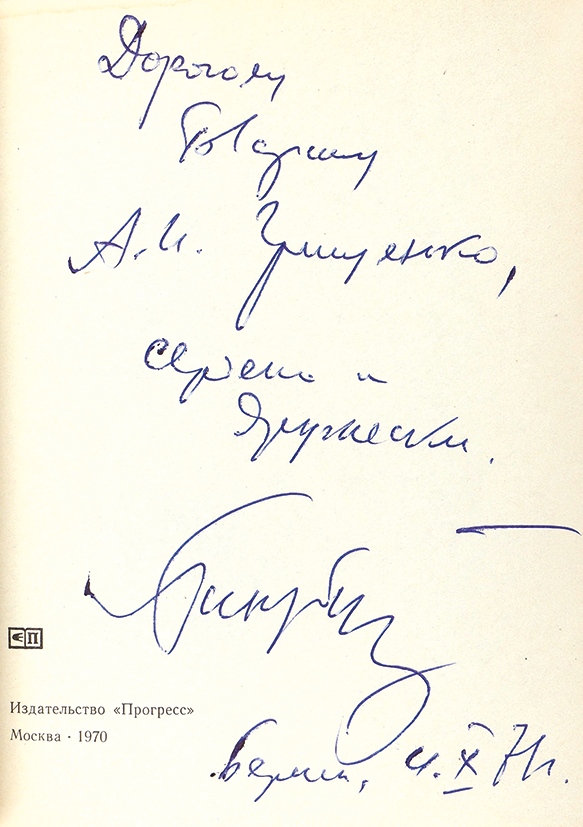 Дорогому
Товарищу
А.И. Грищенко,
сердечно и
дружески.
Издательство «Прогресс»
Москва · 1970
Берлин, 4.X 71г.